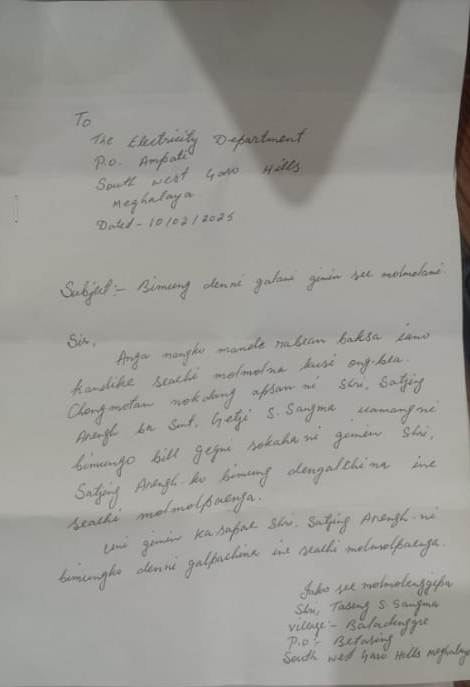 To
The Electricity Department
P.O. Ampati
South West Garo Hills
Meghalaya
Dated - 10/02/2025
Subject:- Bimung denni galani gimin see molmolani.
Sir,
Anga nangko mande rabean baksa iano
kandike seachi molmolna kusi ong.bea.
Chongmotan nokdang apsan ni Shri. Satjing
Arengh ba Smt. Getji S. Sangma uamangni
bimungo bill gegni sokaha ni gimin Shri.
Satjing Arengh ko bimung dengalchina ine
seachi molmolpaenga.
Uni gimin ka.sapae Shri. Satjing Arengh-ni
bimungko denni galpachina ine seachi molmolpaenga.
Jako see molmolenggipa
Shri, Taseng S. Sangma
Village:- Baladinggre
P.O:- Betasing
South West Garo Hills Meghalaya